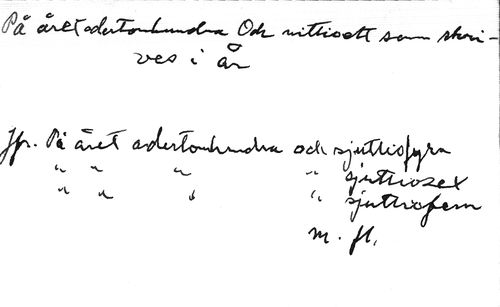 På året adertonhundra Och nittioett som skri-
ves i år
Jfr. På året adertonhundra och sjuttiofyra
" " " " sjuttiosex
" " " " sjuttiofem
m. fl.